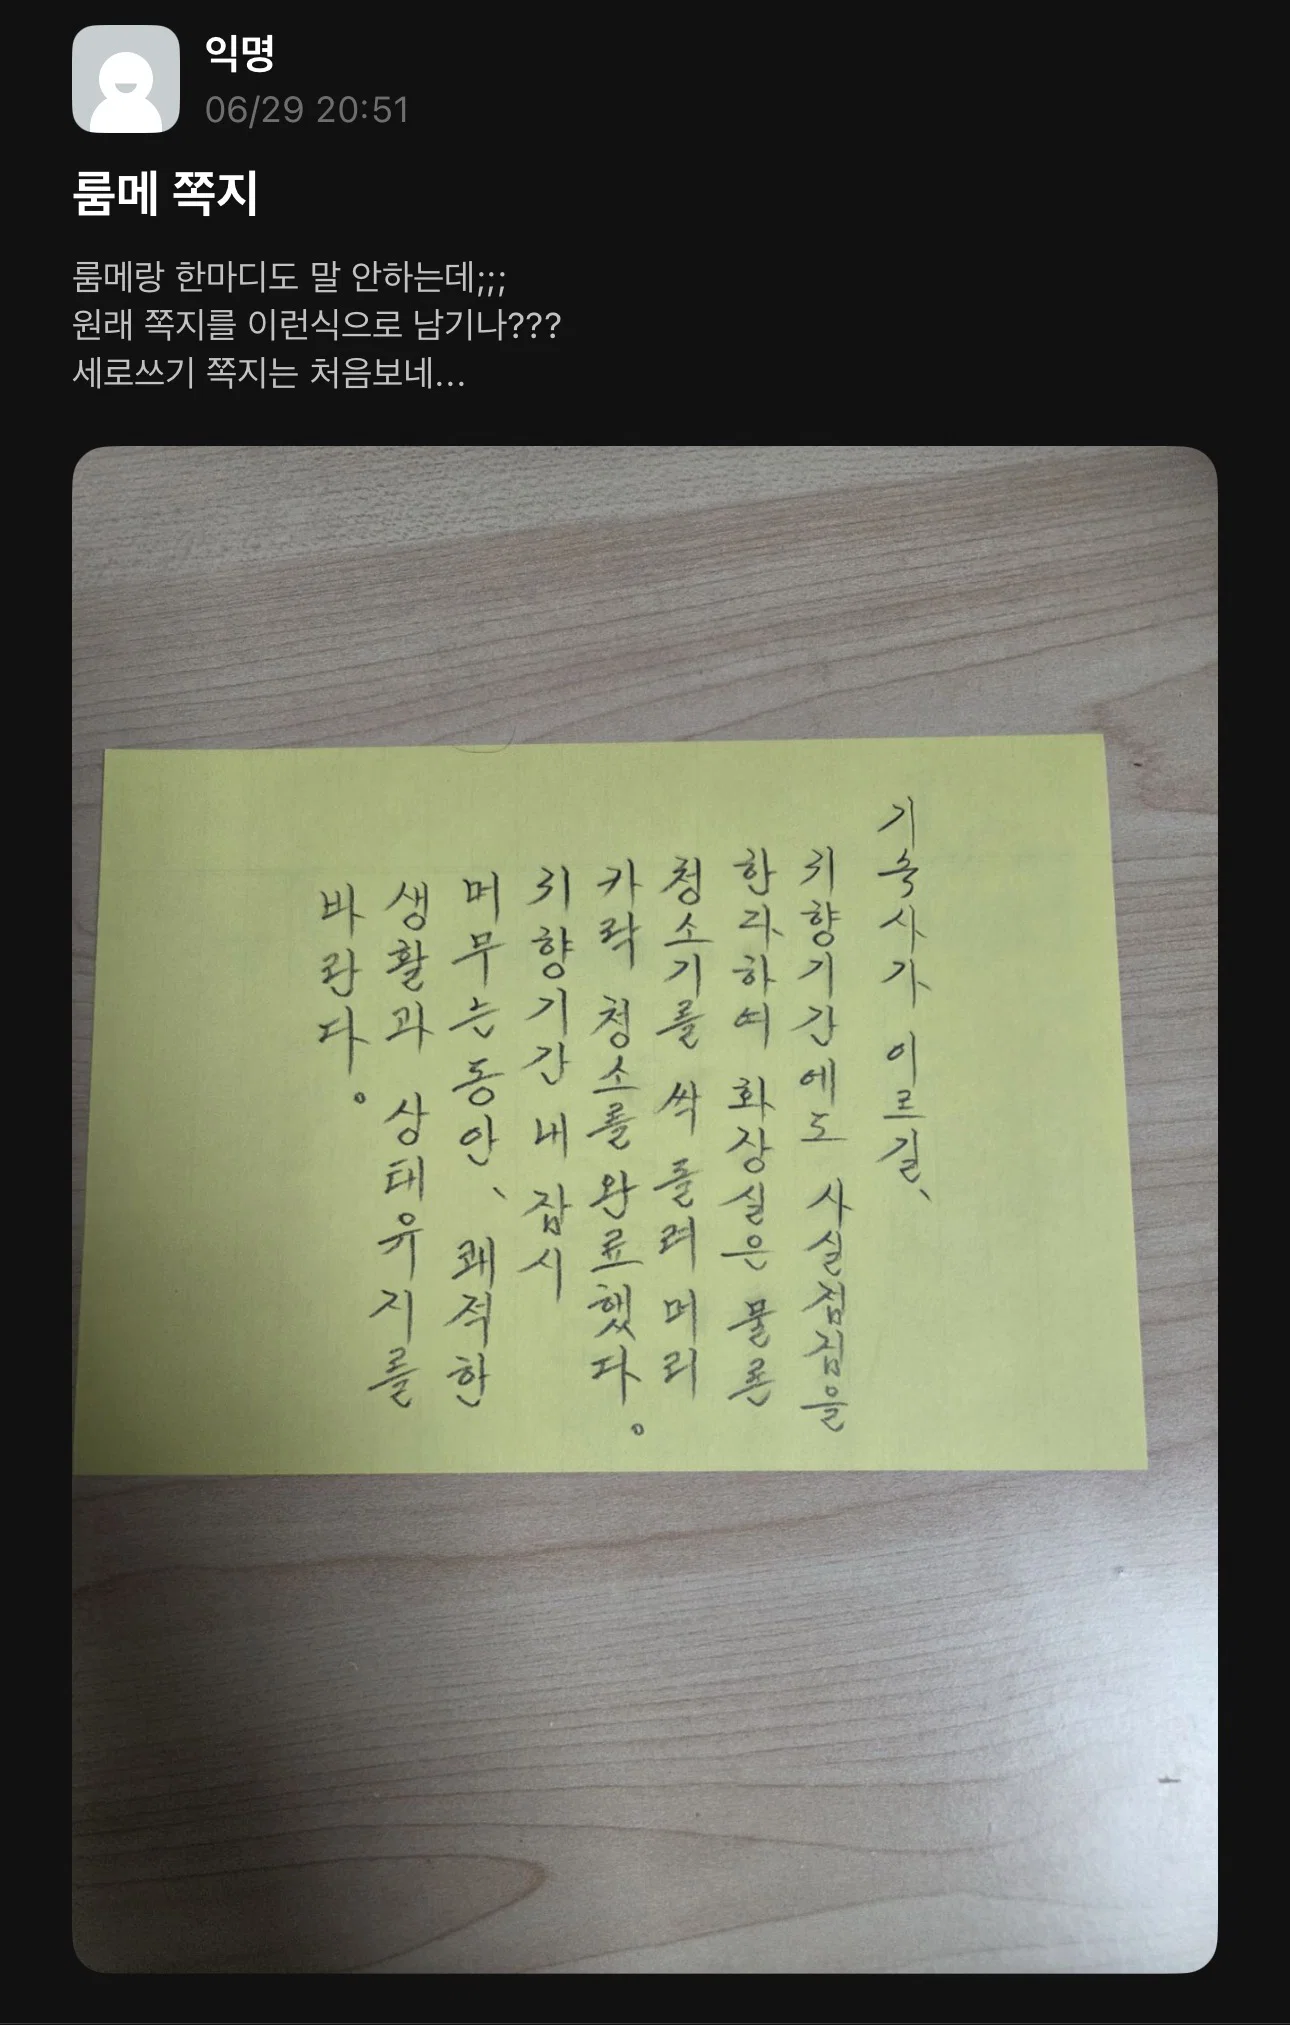 익명
06/29 20:51
룸메 쪽지
룸메랑 한마디도 말 안하는데;;;
원래 쪽지를 이런식으로 남기나???
세로쓰기 쪽지는 처음보네...
기숙사가 이르길、
귀향기간에도 사실점검을
한다하여 화장실은 물론
청소기를 싹 돌려 머리
카락 청소를 완료했다。
귀향기간 내 잠시
머무는동안、쾌적한
생활과 상태유지를
바란다。